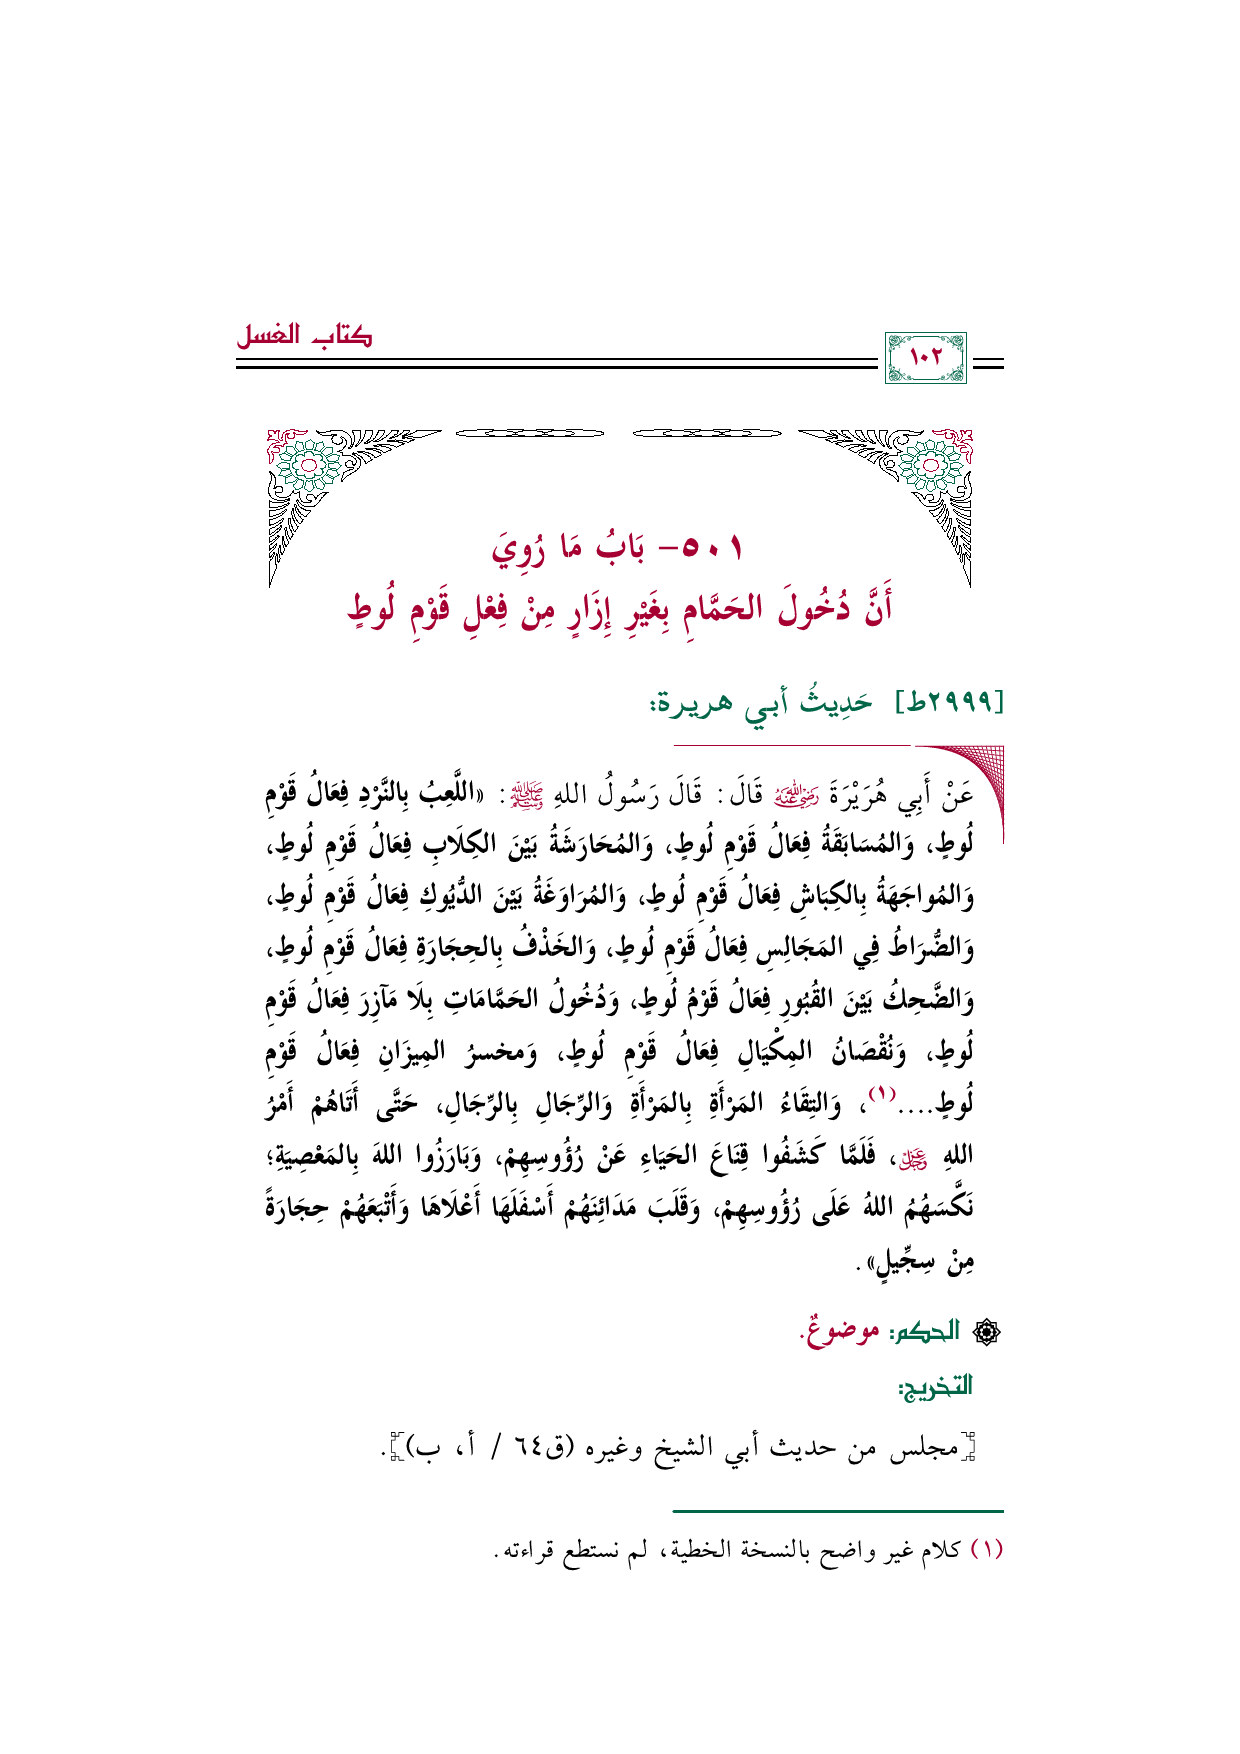 كتاب الغسل
١٠٢
٥٠١- بَابُ مَا رُوِيَ
أَنَّ دُخُولَ الحَمَّامِ بِغَيْرِ إِزَارٍ مِنْ فِعْلِ قَوْمِ لُوطٍ
[٢٩٩٩ط] حَدِيثُ أبي هريرة:
عَنْ أَبِي هُرَيْرَةَ رضي الله عنه قَالَ: قَالَ رَسُولُ اللهِ ﷺ: «اللَّعِبُ بِالنَّرْدِ فِعَالُ قَوْمِ
لُوطٍ، وَالمُسَابَقَةُ فِعَالُ قَوْمِ لُوطٍ، وَالمُحَارَشَةُ بَيْنَ الكِلَابِ فِعَالُ قَوْمِ لُوطٍ،
وَالمُواجَهَةُ بِالكِبَاشِ فِعَالُ قَوْمِ لُوطٍ، وَالمُرَاوَغَةُ بَيْنَ الدُّيُوكِ فِعَالُ قَوْمِ لُوطٍ،
وَالضُّرَاطُ فِي المَجَالِسِ فِعَالُ قَوْمِ لُوطٍ، وَالخَذْفُ بِالحِجَارَةِ فِعَالُ قَوْمِ لُوطٍ،
وَالضَّحِكُ بَيْنَ القُبُورِ فِعَالُ قَوْمُ لُوطٍ، وَدُخُولُ الحَمَّامَاتِ بِلَا مَآزِرَ فِعَالُ قَوْمِ
لُوطٍ، وَنُقْصَانُ المِكْيَالِ فِعَالُ قَوْمِ لُوطٍ، وَمخسرُ المِيزَانِ فِعَالُ قَوْمِ
لُوطٍ....(١)، وَالتِقَاءُ المَرْأَةِ بِالمَرْأَةِ وَالرِّجَالِ بِالرِّجَالِ، حَتَّى أَتَاهُمْ أَمْرُ
اللهِ عز وجل، فَلَمَّا كَشَفُوا قِنَاعَ الحَيَاءِ عَنْ رُؤُوسِهِمْ، وَبَارَزُوا اللهَ بِالمَعْصِيَةِ؛
نَكَّسَهُمُ اللهُ عَلَى رُؤُوسِهِمْ، وَقَلَبَ مَدَائِنَهُمْ أَسْفَلَهَا أَعْلَاهَا وَأَتْبَعَهُمْ حِجَارَةً
مِنْ سِجِّيلٍ».
الحكم: موضوعٌ.
التخريج:
[مجلس من حديث أبي الشيخ وغيره (ق٦٤ / أ، ب)].
(١) كلام غير واضح بالنسخة الخطية، لم نستطع قراءته.